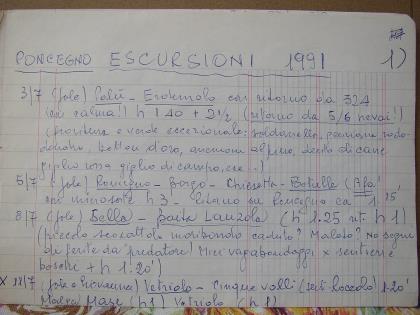 RONCEGNO ESCURSIONI 1991 1)
3/7 (sole) Palù - Erdemolo con ritorno da 324
(con calma!) h 1.40 + 2½ (intorno da 5/6 nevai!)
(fioritura e verde eccezionale: soldanelle, genziane rodo-
dendro, botton d'oro, anemone alpino, dente di cane
giglio rosa giglio di campo, ecc..)
5/7 (sole) Roncegno - Borgo - Chiesetta - Rotelle (Afa!
con microsole h 3 - Ritorno su Roncegno ca 1.15'
8/7 (sole) Sella - Baita Lanzola (h 1.25 alt h 1)
(piccolo scoiattolo moribondo caduto? Malato? No segni
di ferite da predatore! Miei vagabondaggi x sentieri e
boschi + h 1.20'
x 12/7 (sole e Giovanna) Vetriolo - Cinque valli (sent. Roccolo) 1.20
Vetriolo (h 1)